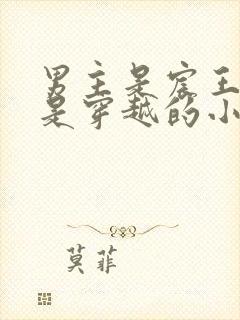 男主是宸王
是穿越的小
莫菲